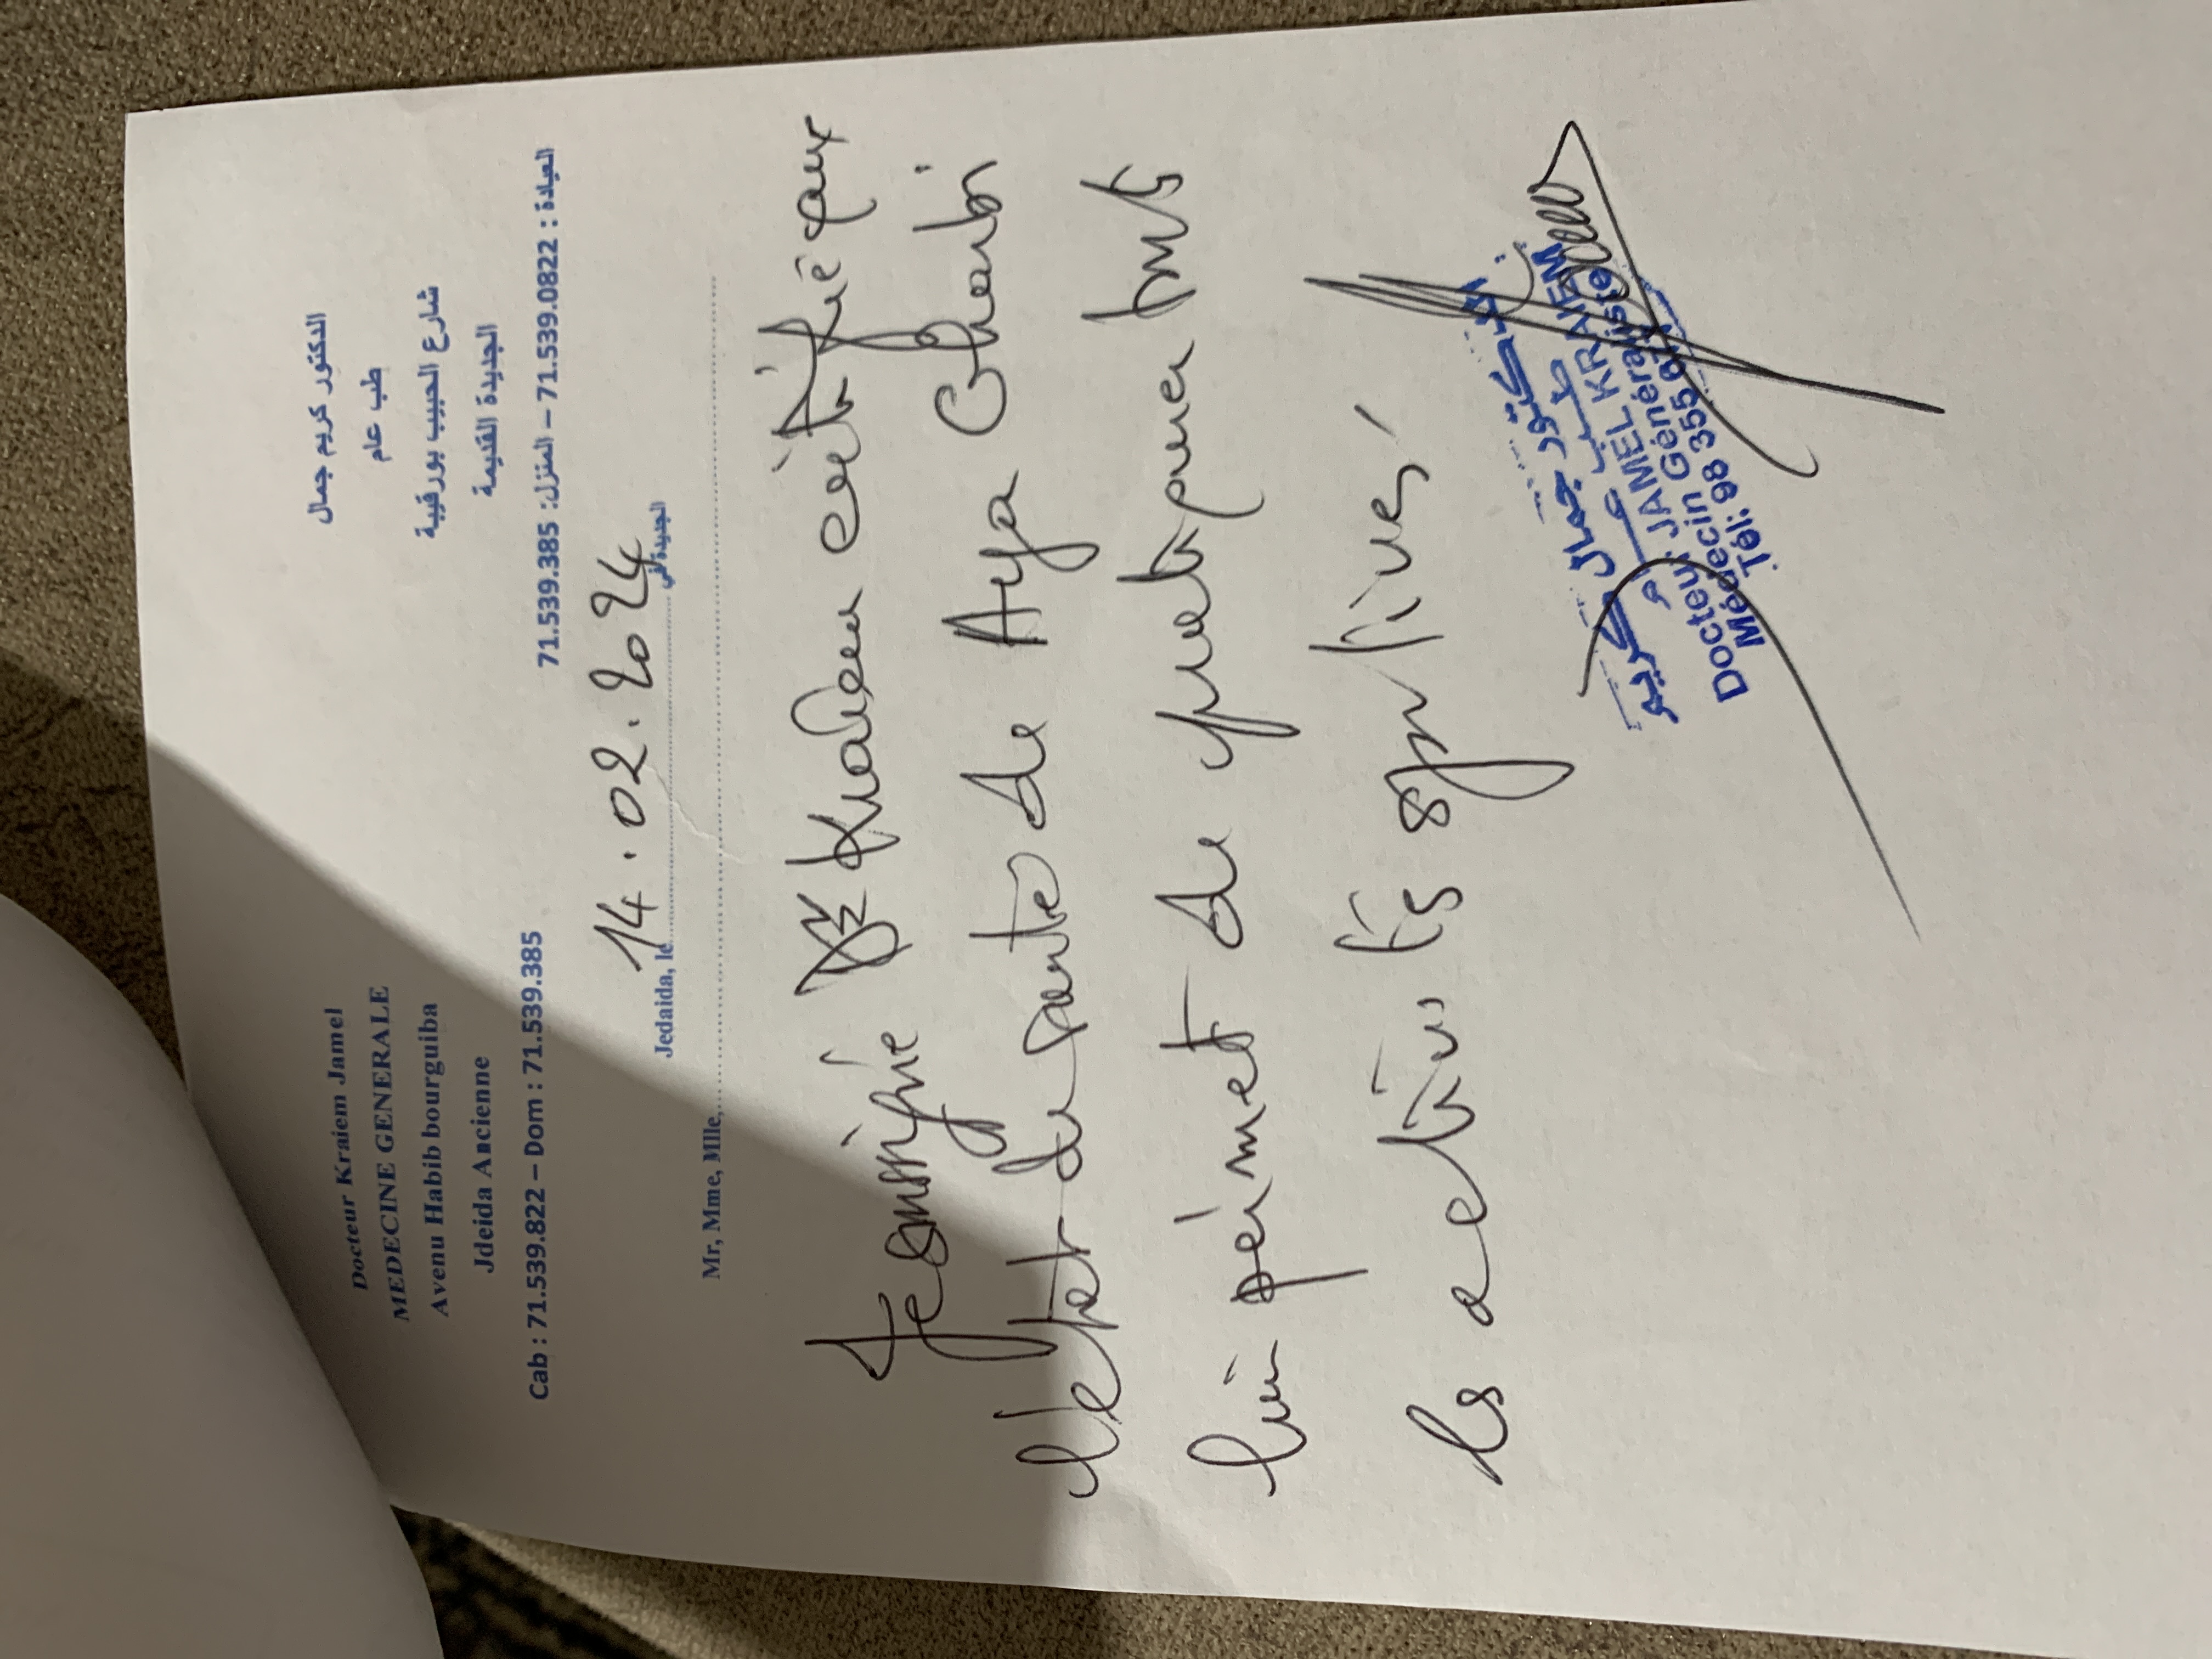 Docteur Kraiem Jamel
MEDECINE GENERALE
Avenu Habib bourguiba
Jdeida Ancienne
Cab : 71.539.822 – Dom : 71.539.385
الدكتور كريم جمال
طب عام
شارع الحبيب بورقيبة
الجديدة القديمة
العيادة : 71.539.0822 – المنزل: 71.539.385
Jedaida, le 14.02.2024 الجديدة في
Mr, Mme, Mlle,
Je soussigné Dr Kraiem certifie que
l'état de santé de Aya Gharbi
lui permet de pratiquer touts
les activités sportives
الدكتور جمال كريم
طبيب عام
Docteur JAMEL KRAIEM
Médecin Généraliste
Tél: 98 355